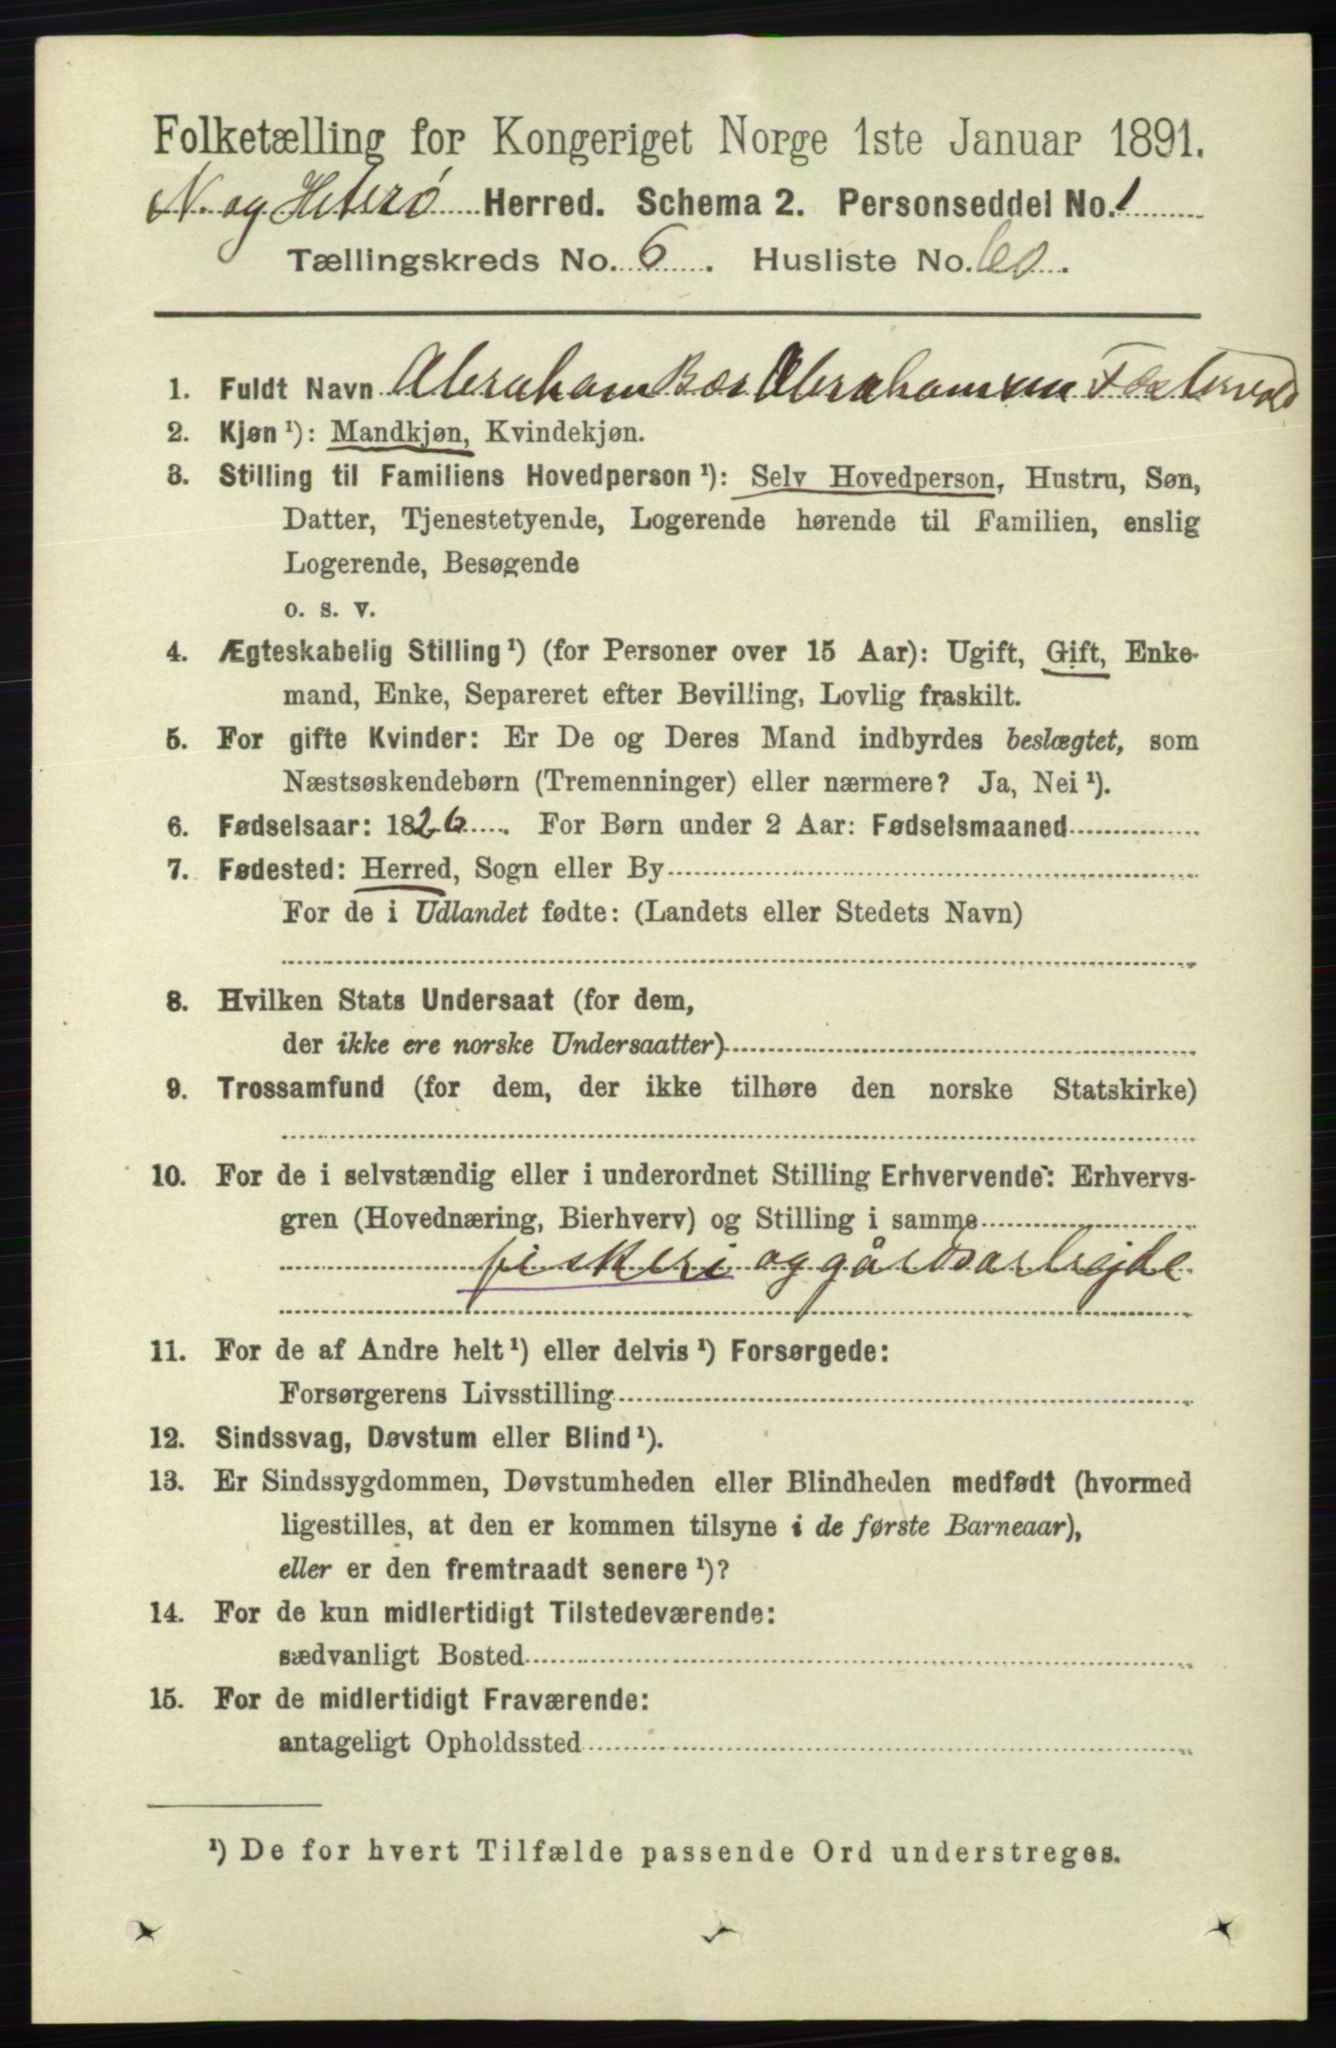 Folketælling for Kongeriget Norge 1ste Januar 1891.
N. og Hiterø Herred. Schema 2. Personseddel No. 1
Tællingskreds No. 6. Husliste No. 60.
1. Fuldt Navn Abraham Abrahamsen
2. Kjøn ¹): Mandkjøn, Kvindekjøn.
3. Stilling til Familiens Hovedperson ¹): Selv Hovedperson, Hustru, Søn,
Datter, Tjenestetyende, Logerende hørende til Familien, enslig
Logerende, Besøgende
o. s. v.
4. Ægteskabelig Stilling ¹) (for Personer over 15 Aar): Ugift, Gift, Enke-
mand, Enke, Separeret efter Bevilling, Lovlig fraskilt.
5. For gifte Kvinder: Er De og Deres Mand indbyrdes beslægtet, som
Næstsøskendebørn (Tremenninger) eller nærmere? Ja, Nei ¹).
6. Fødselsaar: 1826. For Børn under 2 Aar: Fødselsmaaned
7. Fødested: Herred, Sogn eller By
For de i Udlandet fødte: (Landets eller Stedets Navn)
8. Hvilken Stats Undersaat (for dem,
der ikke ere norske Undersaatter)
9. Trossamfund (for dem, der ikke tilhøre den norske Statskirke)
10. For de i selvstændig eller i underordnet Stilling Erhvervende: Erhvervs-
gren (Hovednæring, Bierhverv) og Stilling i samme
fiskeri og gårdsarbejde
11. For de af Andre helt ¹) eller delvis ¹) Forsørgede:
Forsørgerens Livsstilling
12. Sindssvag, Døvstum eller Blind ¹).
13. Er Sindssygdommen, Døvstumheden eller Blindheden medfødt (hvormed
ligestilles, at den er kommen tilsyne i de første Barneaar),
eller er den fremtraadt senere ¹)?
14. For de kun midlertidigt Tilstedeværende:
sædvanligt Bosted
15. For de midlertidigt Fraværende:
antageligt Opholdssted
¹) De for hvert Tilfælde passende Ord understreges.